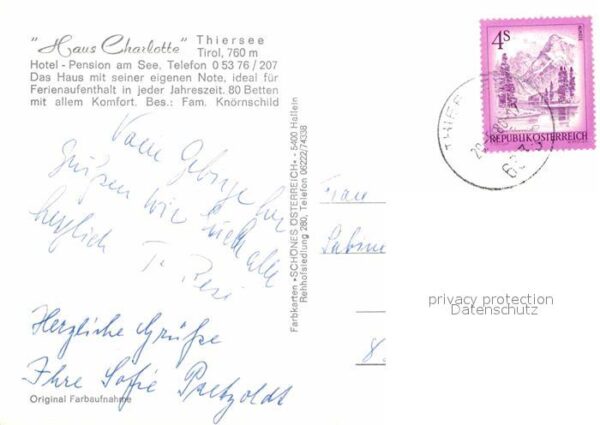 "Haus Charlotte" Thiersee
Tirol, 760 m
Hotel - Pension am See, Telefon 0 53 76 / 207
Das Haus mit seiner eigenen Note, ideal für
Ferienaufenthalt in jeder Jahreszeit. 80 Betten
mit allem Komfort. Bes.: Fam. Knörnschild
Vom Gebirge her
grüßen wir Euch alle
herzlich T. Resi
Herzliche Grüße
Ihre Sofie Paetzoldt
Original Farbaufnahme
Farbkarten •SCHÖNES ÖSTERREICH• - 5400 Hallein
Rehhofsiedlung 280, Telefon 06222/74338
4S
REPUBLIK ÖSTERREICH
THIER
Frau
Sabine
8.
privacy protection
Datenschutz